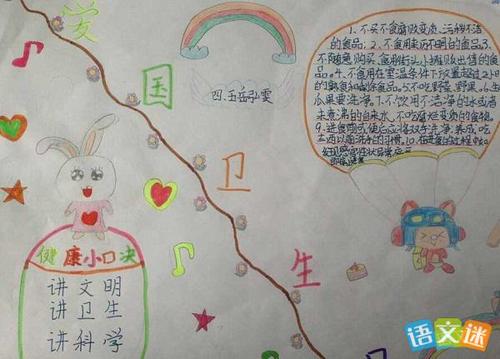 爱
国
卫
生
四.五岳弘雯
1、不买不食腐败变质、污秽不洁
的食品；2、不食用来历不明的食品；3、
不随意购买、食用街头小摊贩出售的食
品。4、不食用在室温条件下放置超过2小
时的熟食和剩余食品。5、不吃野菜、野果。6、生
瓜果要洗净。7、不饮用不洁净的水或者
未煮沸的自来水
9、进食前或便后应将双手洗净，养成吃
东西以前洗手的习惯。10、在进食的过程中如
健康小口决
讲文明
讲卫生
讲科学
语文迷